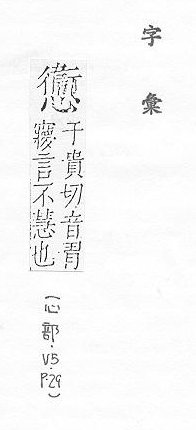 字彙
㦣
于貴切音胃
寱言不慧也
(心部.V5.
P.29)